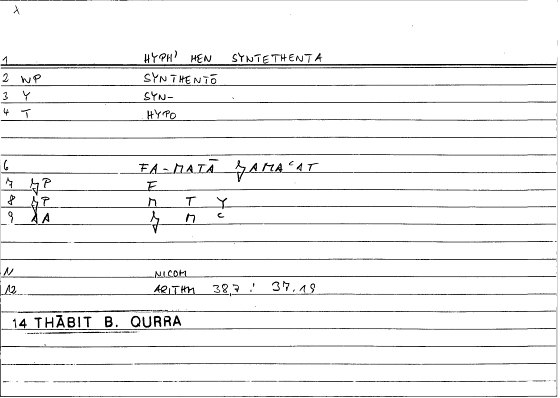 1 HYPH' HEN SYNTETHENTA
2 WP SYNTHENTŌ
3 Y SYN-
4 T HYPO
6 FA-MATĀ ɮAMAʿAT
7 ɮP F
8 ɮP M T Y
9 AA ɮ M ʿ
11 NICOM
12 ARITHM 38,7 : 37.19
14 THĀBIT B. QURRA